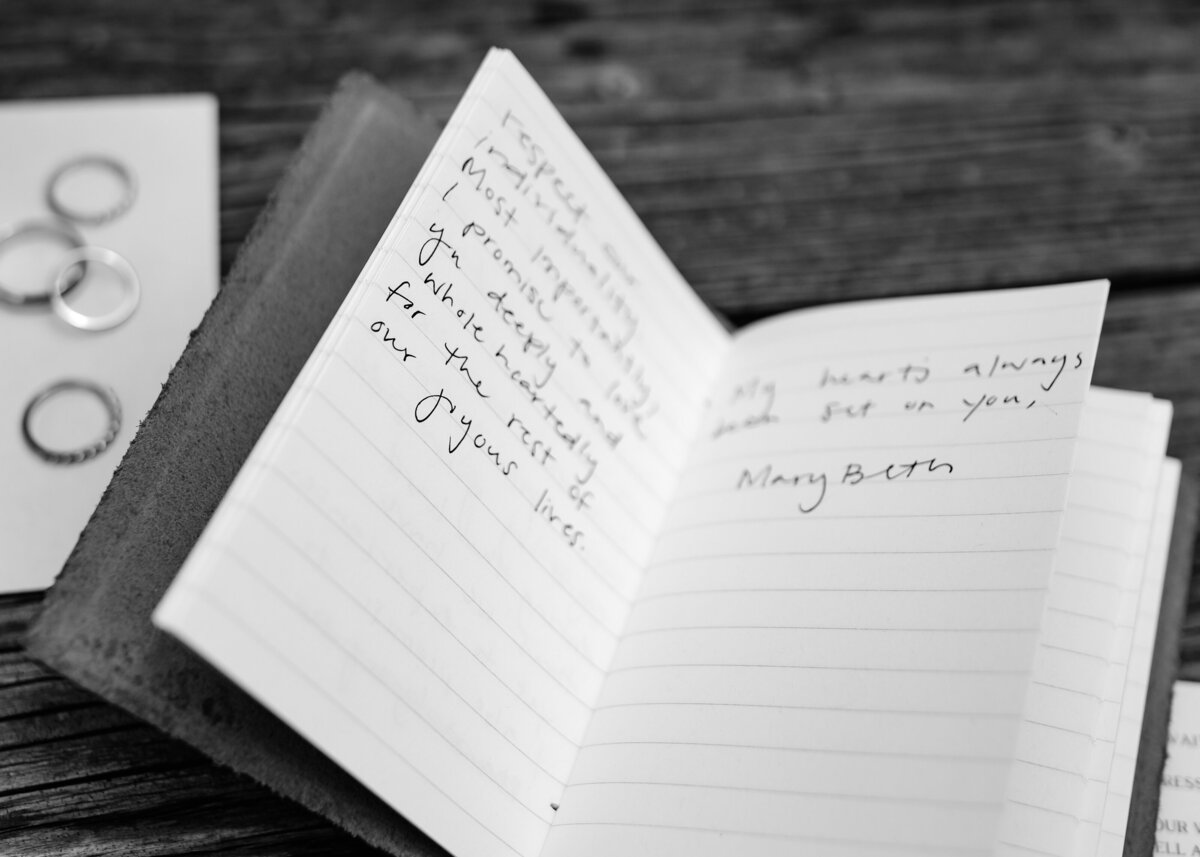 respect our
individuality.
Most importantly,
I promise to love
you deeply and
wholeheartedly
for the rest of
our joyous lives.
My heart's always
been set on you,
Mary Beth
RESS
OUR
ELL A